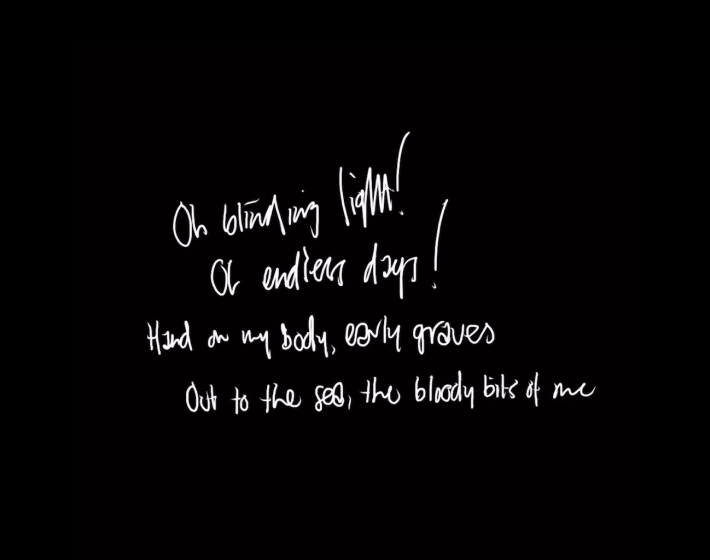 Oh blinding light!
Oh endless days!
Hand on my body, early graves
Out to the sea, the bloody bits of me